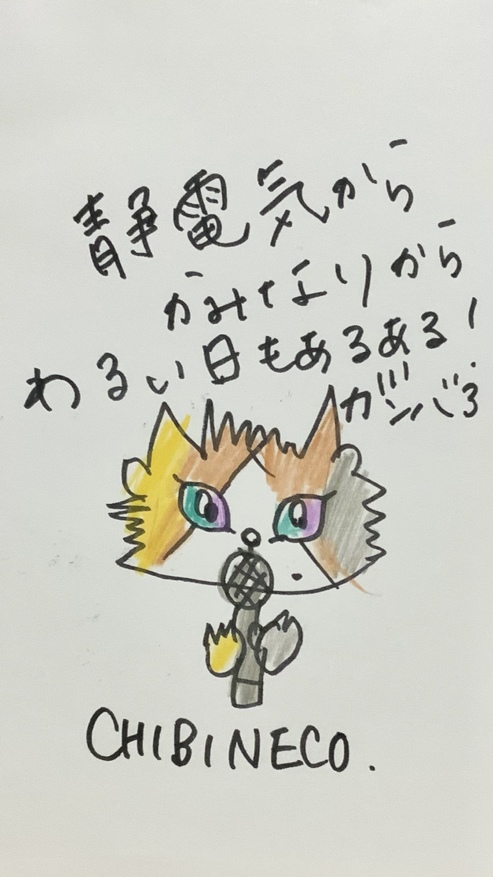 静電気から
かみなりから
わるい日もあるある!
ガンバろ
CHIBINECO.